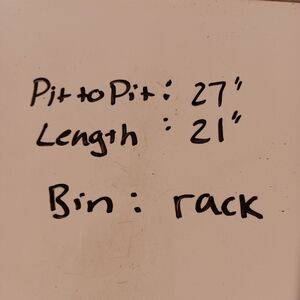 Pit to Pit: 27"
Length : 21"
Bin: rack